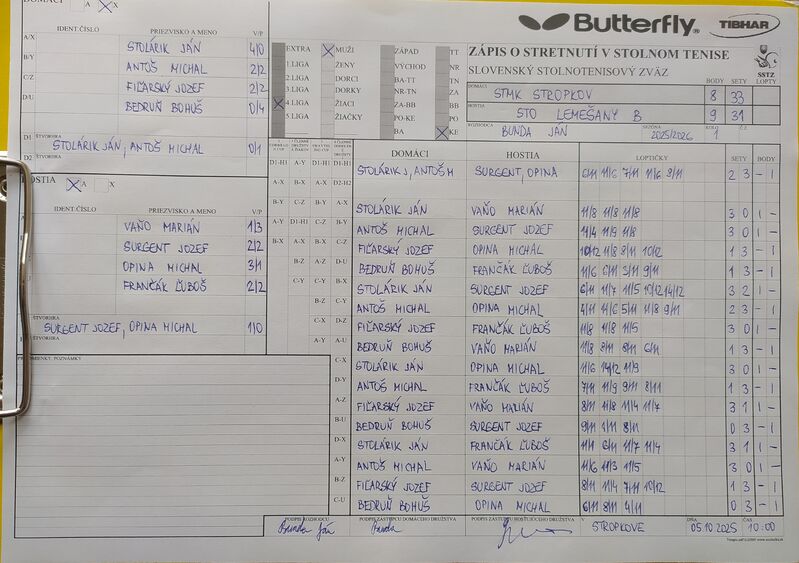 DOMÁCI A X
IDENT.ČÍSLO PRIEZVISKO A MENO V/P
A/X STOLÁRIK JÁN 4/0
B/Y ANTOŠ MICHAL 2/2
C/Z FIĽARSKÝ JOZEF 2/2
D/U BEDRUŇ BOHUŠ 0/4
ŠTVORHRA
D1 STOLÁRIK JÁN, ANTOŠ MICHAL 0/1
D2 ŠTVORHRA
HOSTIA A X
IDENT.ČÍSLO PRIEZVISKO A MENO V/P
VAŇO MARIÁN 1/3
SURGENT JOZEF 2/2
OPINA MICHAL 3/1
FRANČÁK ĽUBOŠ 2/2
ŠTVORHRA
SURGENT JOZEF, OPINA MICHAL 1/0
ŠTVORHRA
PRIPOMIENKY, POZNÁMKY
Butterfly TIBHAR
EXTRA MUŽI ZÁPAD TT
1.LIGA ŽENY VÝCHOD NR
2.LIGA DORCI BA-TT TN
3.LIGA DORKY NR-TN ZA
4.LIGA ŽIACI ZA-BB BB
5.LIGA ŽIAČKY PO-KE PO
BA KE
ZÁPIS O STRETNUTÍ V STOLNOM TENISE
SLOVENSKÝ STOLNOTENISOVÝ ZVÄZ
SSTZ
BODY SETY LOPTY
DOMÁCI STMK STROPKOV 8 33
HOSTIA STO LEMEŠANY B 9 31
ROZHODCA BUNDA JÁN SEZÓNA 2025/2026 KOLO 1
DOMÁCI HOSTIA LOPTIČKY SETY BODY
D1-H1 STOLÁRIK J, ANTOŠ M SURGENT, OPINA 6/11 11/6 7/11 11/6 9/11 2 3 - 1
D2-H2
STOLÁRIK JÁN VAŇO MARIÁN 11/8 11/8 11/8 3 0 1 -
ANTOŠ MICHAL SURGENT JOZEF 11/4 11/9 11/8 3 0 1 -
FIĽARSKÝ JOZEF OPINA MICHAL 10/12 11/8 8/11 10/12 1 3 - 1
BEDRUŇ BOHUŠ FRANČÁK ĽUBOŠ 11/6 6/11 3/11 9/11 1 3 - 1
STOLÁRIK JÁN SURGENT JOZEF 6/11 11/7 11/5 10/12 14/12 3 2 1 -
ANTOŠ MICHAL OPINA MICHAL 4/11 11/6 5/11 11/8 9/11 2 3 - 1
FIĽARSKÝ JOZEF FRANČÁK ĽUBOŠ 11/8 11/8 11/5 3 0 1 -
BEDRUŇ BOHUŠ VAŇO MARIÁN 11/8 8/11 8/11 6/11 1 3 - 1
STOLÁRIK JÁN OPINA MICHAL 11/6 14/12 11/9 3 0 1 -
ANTOŠ MICHAL FRANČÁK ĽUBOŠ 7/11 11/9 9/11 8/11 1 3 - 1
FIĽARSKÝ JOZEF VAŇO MARIÁN 8/11 11/8 11/4 11/7 3 1 1 -
BEDRUŇ BOHUŠ SURGENT JOZEF 9/11 1/11 8/11 0 3 - 1
STOLÁRIK JÁN FRANČÁK ĽUBOŠ 11/1 6/11 11/7 11/4 3 1 1 -
ANTOŠ MICHAL VAŇO MARIÁN 11/6 11/3 11/5 3 0 1 -
FIĽARSKÝ JOZEF SURGENT JOZEF 8/11 11/4 7/11 10/12 1 3 - 1
BEDRUŇ BOHUŠ OPINA MICHAL 6/11 8/11 4/11 0 3 - 1
PODPIS ROZHODCU Bunda Ján
PODPIS ZÁSTUPCU DOMÁCEHO DRUŽSTVA Bunda
PODPIS ZÁSTUPCU HOSŤUJÚCEHO DRUŽSTVA
V STROPKOVE DŇA 05.10.2025 ČAS 10:00